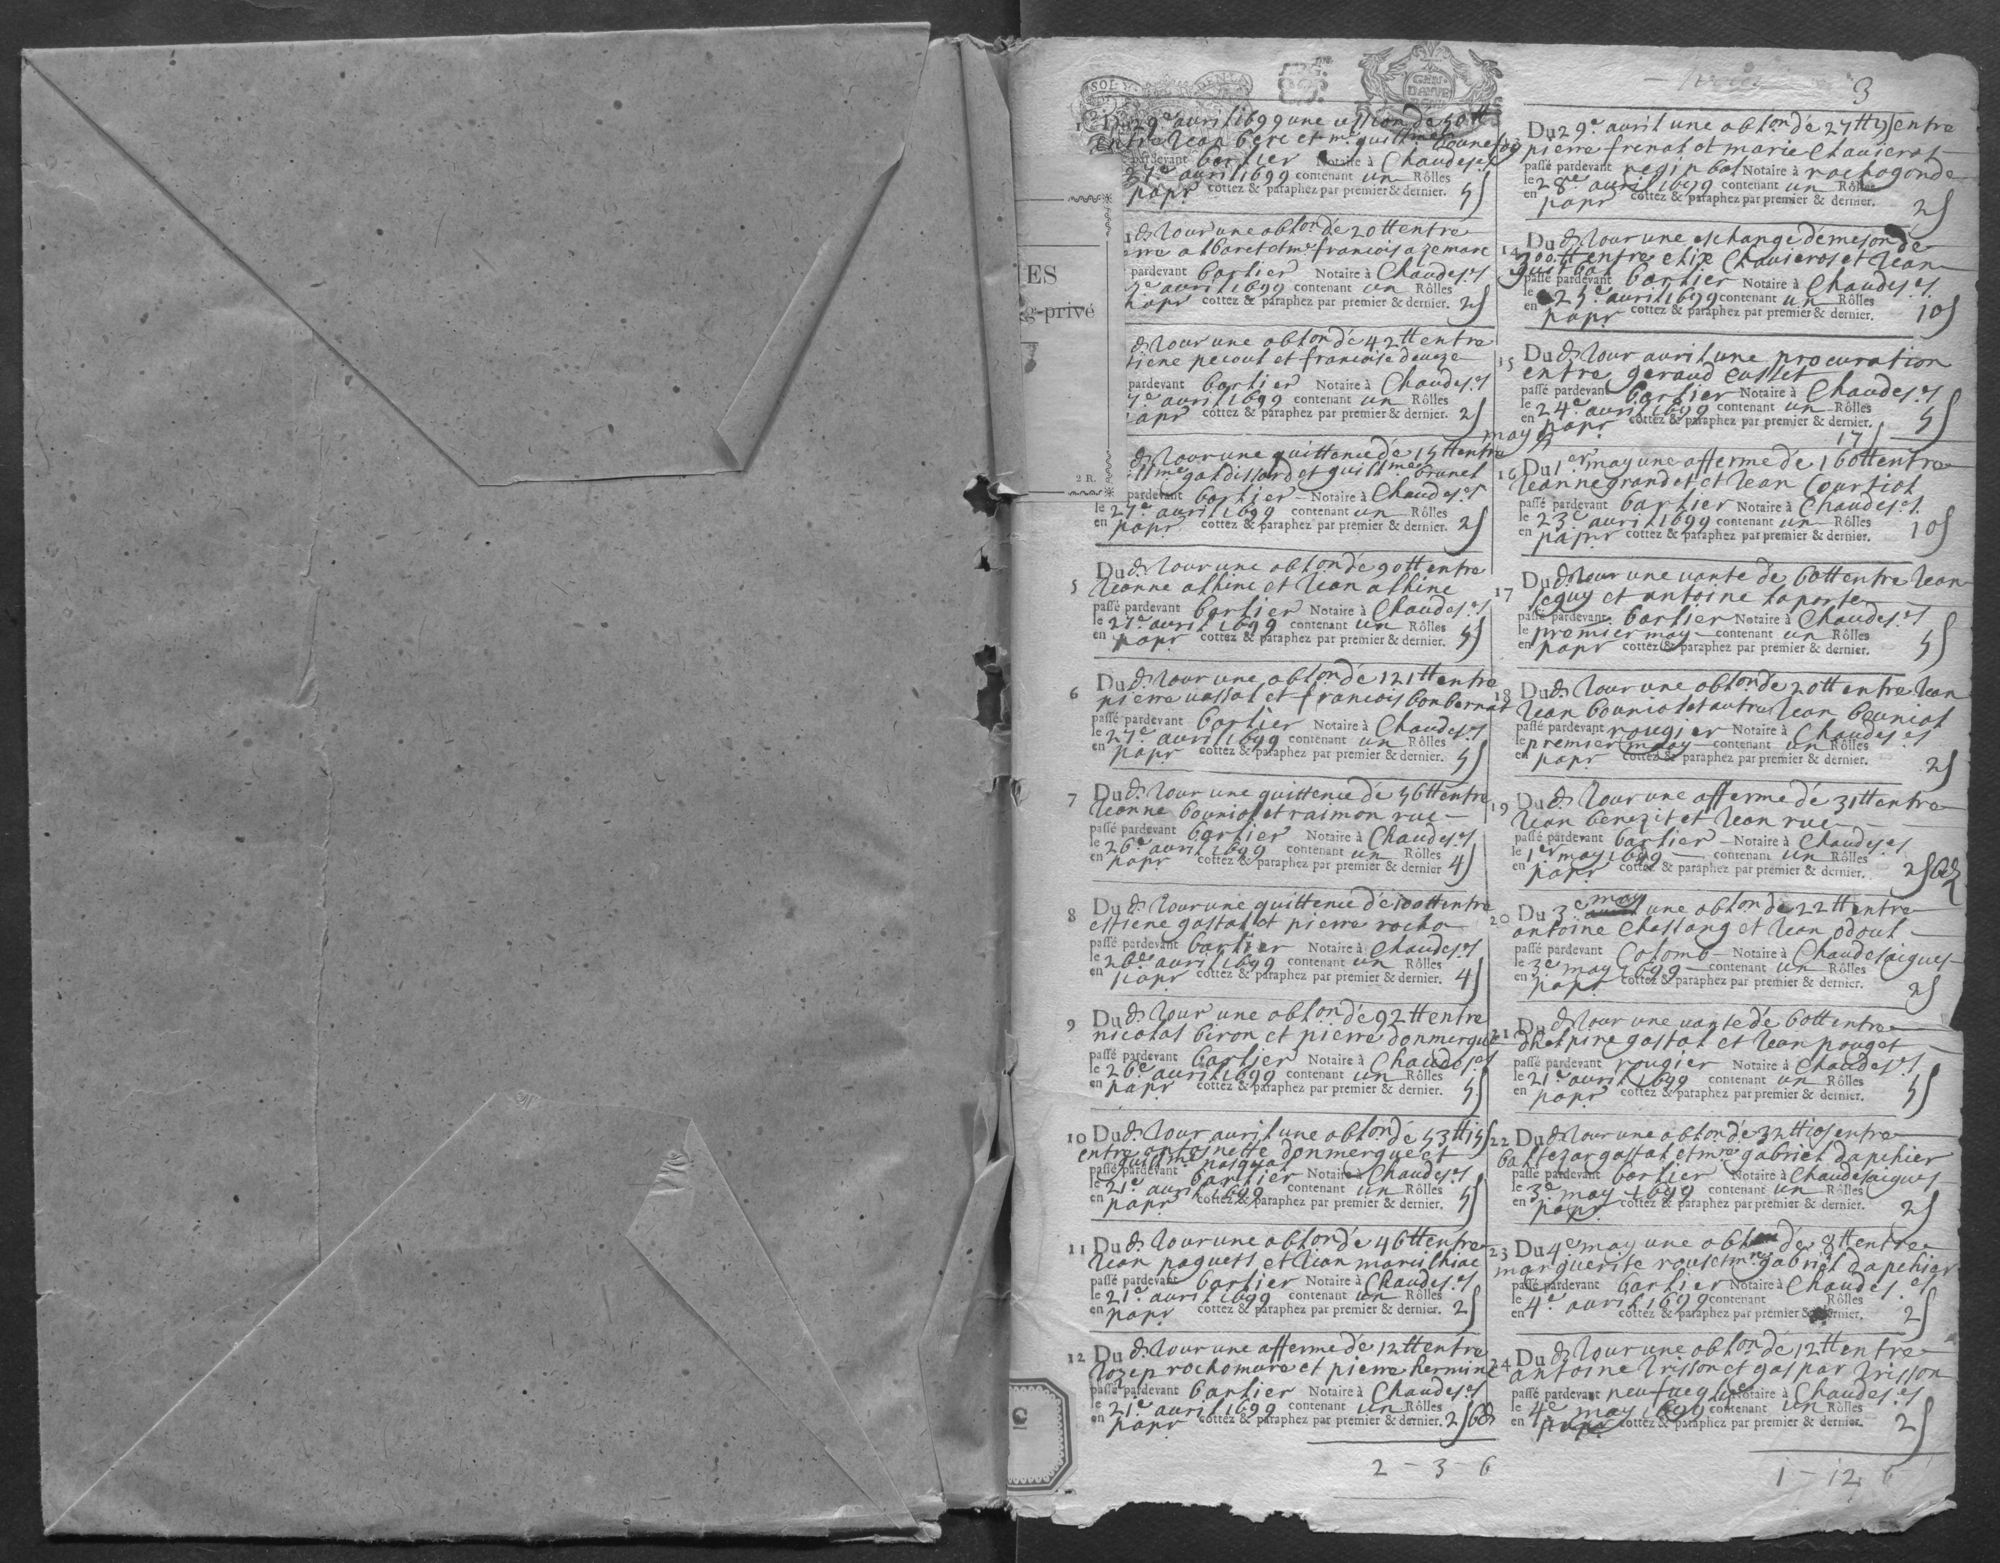 3
SOL
GEN
1 Du 29e avril 1699 une cession de 50tt
entre Jean bere et me guillme bounefos
pardevant barlier Notaire à Chaudes.es
27e avril 1699 contenant un Rôlles
papr cottez & paraphez par premier & dernier. 5s
d. Jour une oblon de 20tt entre
erre albaret et me francois azemare
pardevant barlier Notaire à Chaudes.es
avril 1699 contenant un Rôlles
papr cottez & paraphez par premier & dernier. 2s
d. Jour une oblon de 42tt entre
tiene pecoul et francoise deveze
pardevant barlier Notaire à Chaudes.es
7e avril 1699 contenant un Rôlles
papr cottez & paraphez par premier & dernier. 2s
d. Jour une quittence de 15tt entre
galdissard et guillme brunel
pardevant barlier Notaire à Chaudes.es
le 27e avril 1699 contenant un Rôlles
en papr cottez & paraphez par premier & dernier. 2s
5 Du d. Jour une oblon de 90tt entre
Jeanne alhine et Jean alhine
passé pardevant barlier Notaire à Chaudes.es
le 27e avril 1699 contenant un Rôlles
en papr cottez & paraphez par premier & dernier. 5s
6 Du d. Jour une oblon de 121tt entre
pierre vassal et francois bonbernat
passé pardevant barlier Notaire à Chaudes.es
le 27e avril 1699 contenant un Rôlles
en papr cottez & paraphez par premier & dernier. 5s
7 Du d. Jour une quittence de 56tt entre
Jeanne bouniol et raimon rue
passé pardevant barlier Notaire à Chaudes.es
le 26e avril 1699 contenant un Rôlles
en papr cottez & paraphez par premier & dernier 4s
8 Du d. Jour une quittence de 100tt entre
estiene gastal et pierre rocho
passé pardevant barlier Notaire à Chaudes.es
le 26e avril 1699 contenant un Rôlles
en papr cottez & paraphez par premier & dernier. 4s
9 Du d. Jour une oblon de 92tt entre
nicolas biron et pierre donmergue
passé pardevant barlier Notaire à Chaudes.es
le 26e avril 1699 contenant un Rôlles
en papr cottez & paraphez par premier & dernier. 5s
10 Du d. Jour avril une oblon de 53tt 15s
entre antoinette donmergue et
guillme pasqual
passé pardevant barlier Notaire à Chaudes.es
le 21e avril 1699 contenant un Rôlles
en papr cottez & paraphez par premier & dernier. 5s
11 Du d. Jour une oblon de 46tt entre
Jean pagues et Jean marcilhiac
passé pardevant barlier Notaire à Chaudes.es
le 21e avril 1699 contenant un Rôlles
en papr cottez & paraphez par premier & dernier. 2s
12 Du d. Jour une afferme de 12tt entre
Jozep rochomure et pierre hermine
passé pardevant barlier Notaire à Chaudes.es
le 21e avril 1699 contenant un Rôlles
en papr cottez & paraphez par premier & dernier. 2s 6d
2 - 3 - 6
Du 29e avril une oblon de 27tt 9s entre
pierre frenal et marie Chavierol
passé pardevant reginbal Notaire à rochegonde
le 28e avril 1699 contenant un Rôlles
en papr cottez & paraphez par premier & dernier. 2s
14 Du d. Jour une eschange de meson de
300tt entre elix Chavierol et Jean
guirbal
passé pardevant barlier Notaire à Chaudes.es
le 25e avril 1699 contenant un Rôlles
en papr cottez & paraphez par premier & dernier. 10s
15 Du d. Jour avril une procuration
entre geraud Cusset
passé pardevant barlier Notaire à Chaudes.es
le 24e avril 1699 contenant un Rôlles
en papr cottez & paraphez par premier & dernier. 5s
may
17s
16 Du 1er may une afferme de 160tt entre
Jeanne grandet et Jean Courtiol
passé pardevant barlier Notaire à Chaudes.es
le 23e avril 1699 contenant un Rôlles
en papr cottez & paraphez par premier & dernier. 10s
17 Du d. Jour une vante de 60tt entre Jean
seguy et antoine laporte
passé pardevant barlier Notaire à Chaudes.es
le premier may contenant un Rôlles
en papr cottez & paraphez par premier & dernier. 5s
18 Du d. Jour une oblon de 20tt entre Jean
Jean bouniol et autre Jean bouniol
passé pardevant rougier Notaire à Chaudes.es
le premier may contenant un Rôlles
en papr cottez & paraphez par premier & dernier. 2s
19 Du d. Jour une afferme de 31tt entre
Jean benezit et Jean rue
passé pardevant barlier Notaire à Chaudes.es
le 1er may 1699 contenant un Rôlles
en papr cottez & paraphez par premier & dernier. 2s 6d
20 Du 3e may une oblon de 22tt entre
antoine Chastang et Jean odoul
passé pardevant Colomb Notaire à Chaudesaigues
le 3e may 1699 contenant un Rôlles
en papr cottez & paraphez par premier & dernier. 2s
21 Du d. Jour une vante de 60tt entre
dhelpine gastal et Jean pouget
passé pardevant rougier Notaire à Chaudes.es
le 21e avril 1699 contenant un Rôlles
en papr cottez & paraphez par premier & dernier. 5s
22 Du d. Jour une oblon de 32tt 10s entre
baltezar gastal et mre gabriel dapchier
passé pardevant barlier Notaire à Chaudesaigues
le 3e may 1699 contenant un Rôlles
en papr cottez & paraphez par premier & dernier. 2s
23 Du 4e may une oblon de 8tt entre
marguerite roux et mre gabriel dapchier
passé pardevant barlier Notaire à Chaudes.es
le 4e avril 1699 contenant Rôlles
en cottez & paraphez par premier & dernier. 2s
24 Du d. Jour une oblon de 12tt entre
antoine brisson et gaspar brisson
passé pardevant neufveglise Notaire à Chaudes.es
le 4e may 1699 contenant un Rôlles
en papr cottez & paraphez par premier & dernier. 2s
1 - 12 6
ES
g-privé
2 R.